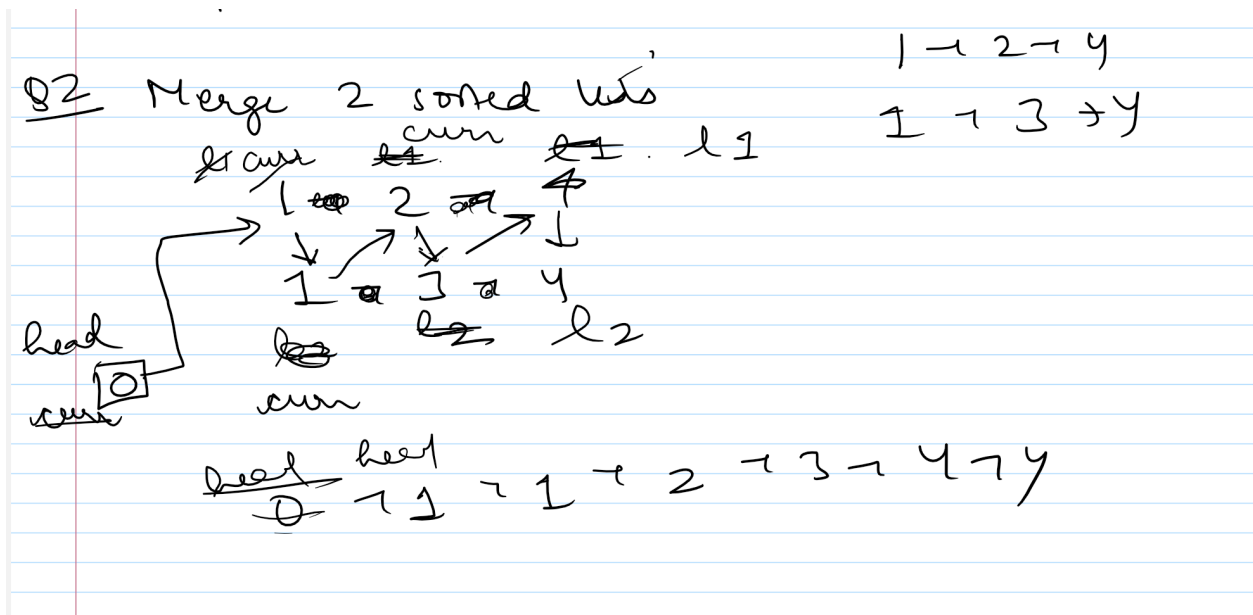 Q2 Merge 2 sorted lists
1 → 2 → 4
1 → 3 → 4
l1 curr l1 curr l1 l1
1 → 2 → 4
1 → 3 → 4
head l2 l2 l2
0
curr curr
head head
0 → 1 → 1 → 2 → 3 → 4 → 4